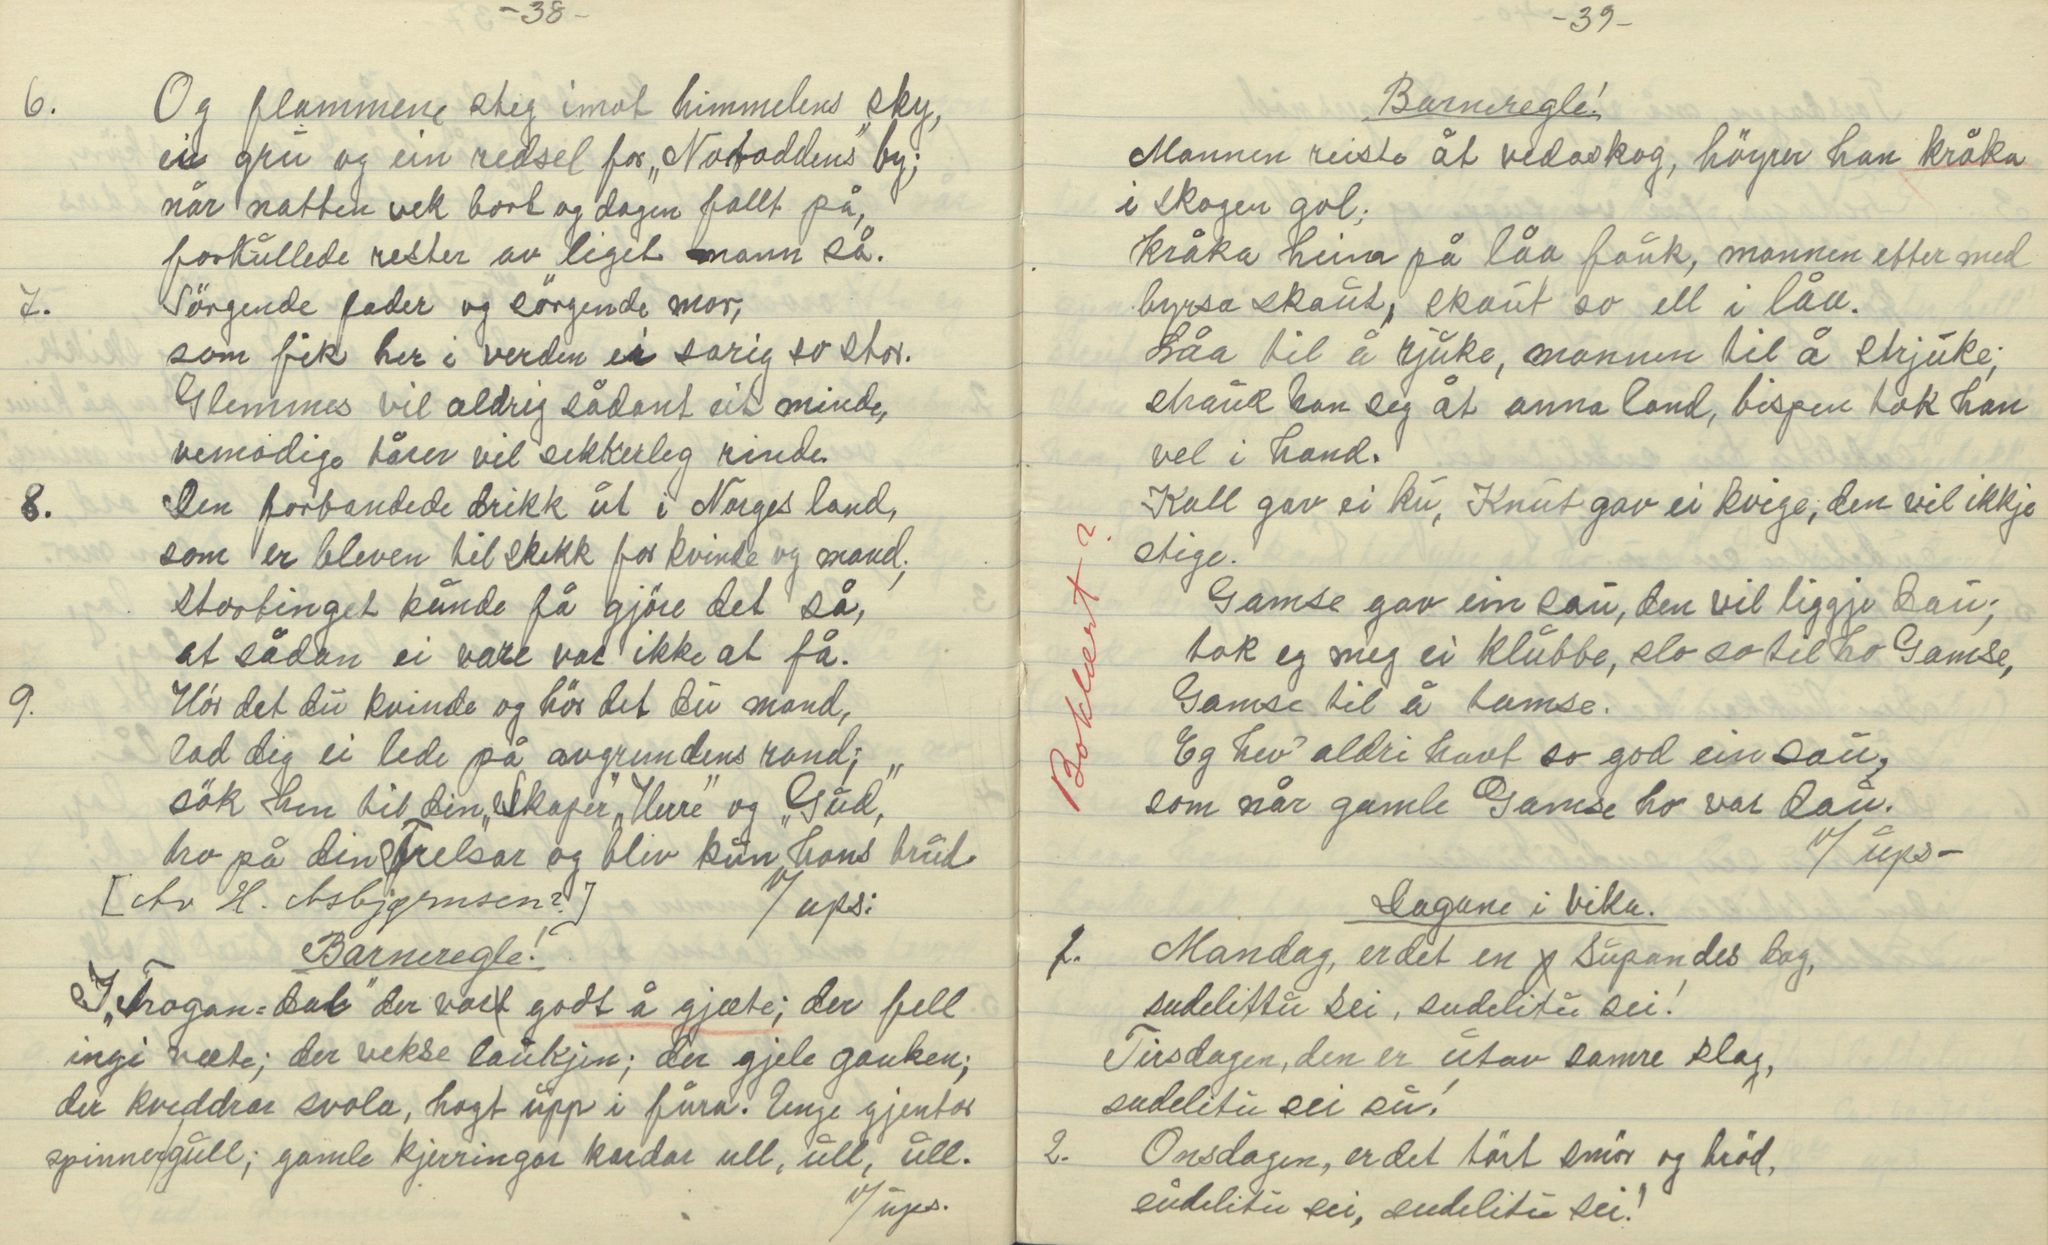 -38-
6. Og flammene steg imot himmelens sky,
ei gru og ein redsel for „Notoddens" by;
når natten vek bort og dagen fallt på,
forkullede rester av liget mann så.
7. Sörgende fader og sörgende mor,
som fik her i verden ei sorig so stor.
Glemmes vil aldrig sådant eit minde,
vemodige tårer vil sekkerleg rinde.
8. Den forbandede drikk ut i Norges land,
som er bleven til skikk for kvinde og mand;
stortinget kunde få gjöre det så,
at sådan ei vare var ikke at få.
9. Hör det du kvinde og hör det du mand,
lad dig ei lede på avgrundens rand;
sök hen til din „Skaper", „Herre" og „Gud,"
tro på din Frelsar og bliv kun hans brud.
[Av H. Asbjørnsen?] v/ ups:
Barneregle!
I „Trogan=dal" der vart godt å gjæte; der fell
ingi væte; der vekse laukjen; der gjele gauken;
der kveddrar svola, hogt upp i fura. Unge gjentor
spinner gull; gamle kjerringar kardar ull, ull, ull.
v/ ups.
-39-
Barneregle!
Mannen reiste åt vedaskog, höyrer han kråka
i skogen gol;
kråka heim på låa fauk, mannen etter med
byrsa skaut, skaut so ell i låa.
Låa til å rjuke, mannen til å strjuke;
strauk han seg åt anna land, bispen tok han
vel i hand.
Kall gav ei ku, Knut gav ei kvige, den vil ikkje
stige.
Gamse gav ein sau, den vil liggje dau;
tok eg meg ei klubbe, slo so til ho Gamse,
Gamse til å tamse.
Eg hev' aldri havt so god ein sau,
som når gamle Gamse ho var dau.
v/ ups-
Boklært?
Dagane i vika.
1. Mandag, er det en supandes dag,
sudelittu sei, sudelitu sei!
Tirsdagen, den er utav samre slag,
sudelitu sei su!
2. Onsdagen, er det tört smör og bröd,
sudelitu sei, sudelitu sei!